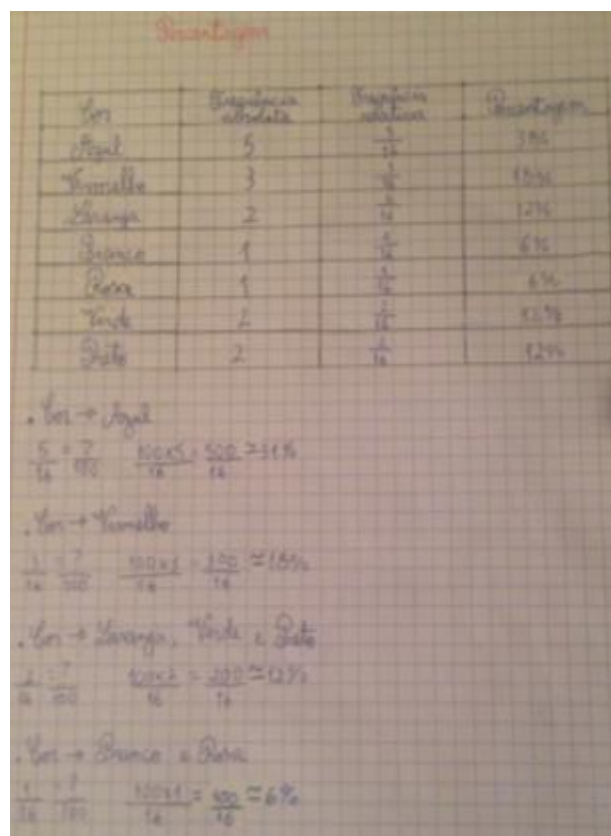 Percentagem
Cor Frequência absoluta Frequência relativa Percentagem
Azul 5 5/16 31%
Vermelho 3 3/16 18%
Laranja 2 2/16 12%
Branco 1 1/16 6%
Rosa 1 1/16 6%
Verde 2 2/16 12%
Preto 2 2/16 12%
. Cor → Azul
5/16 = ?/100 100x5/16 = 500/16 ≃ 31%
. Cor → Vermelho
3/16 = ?/100 100x3/16 = 300/16 ≃ 18%
. Cor → Laranja, Verde e Preto
2/16 = ?/100 100x2/16 = 200/16 ≃ 12%
. Cor → Branco e Rosa
1/16 = ?/100 100x1/16 = 100/16 ≃ 6%